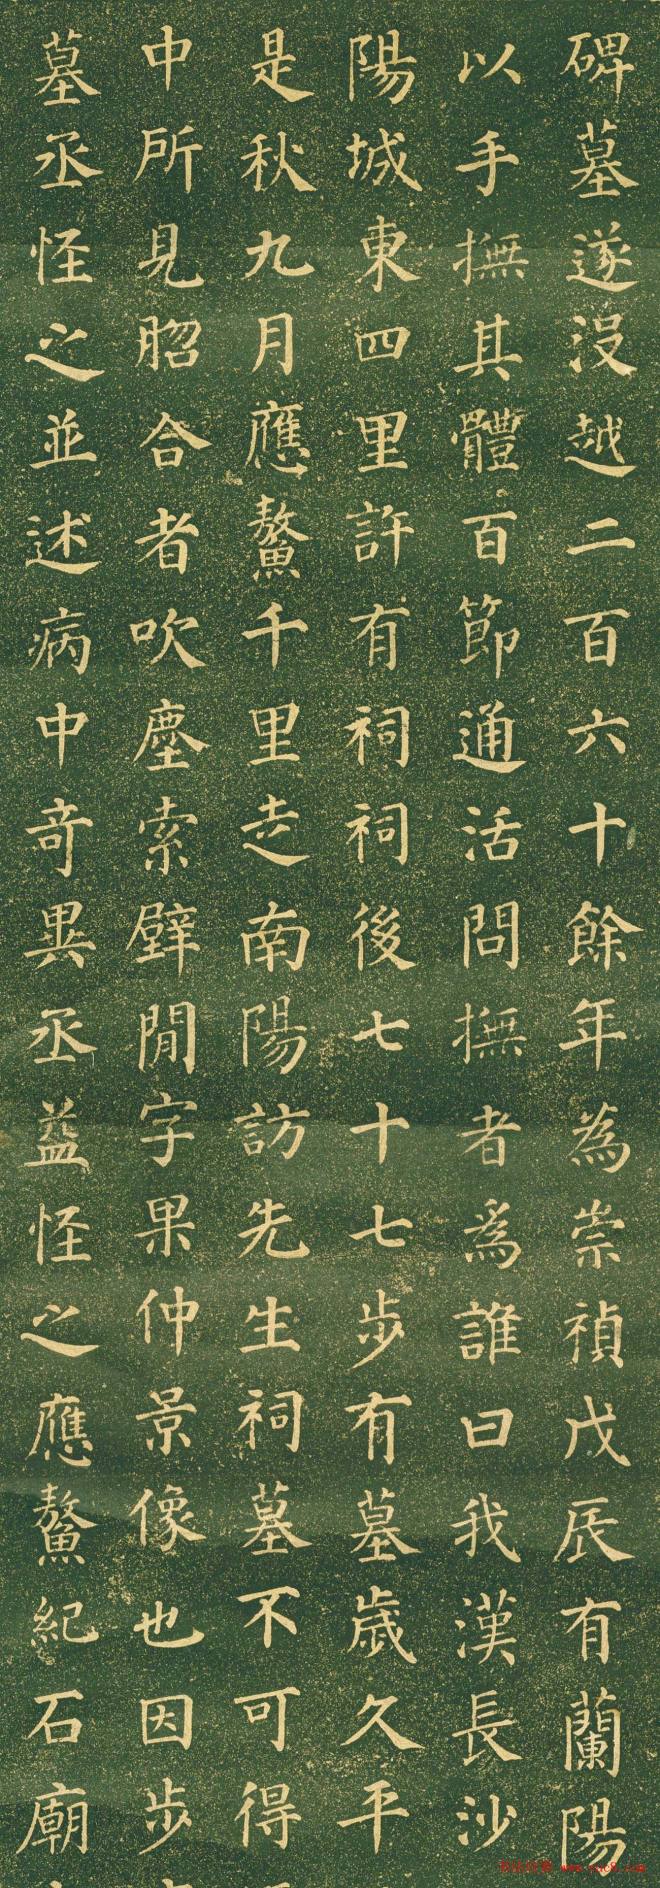 碑墓遂没越二百六十餘年為崇禎戊辰有蘭陽
以手撫其體百節通活問撫者爲誰曰我漢長沙
陽城東四里許有祠祠後七十七步有墓歲久平
是秋九月應鰲千里走南陽訪先生祠墓不可得
中所見脗合者吹塵索壁閒字果仲景像也因步
墓丞怪之並述病中奇異丞益怪之應鰲紀石廟